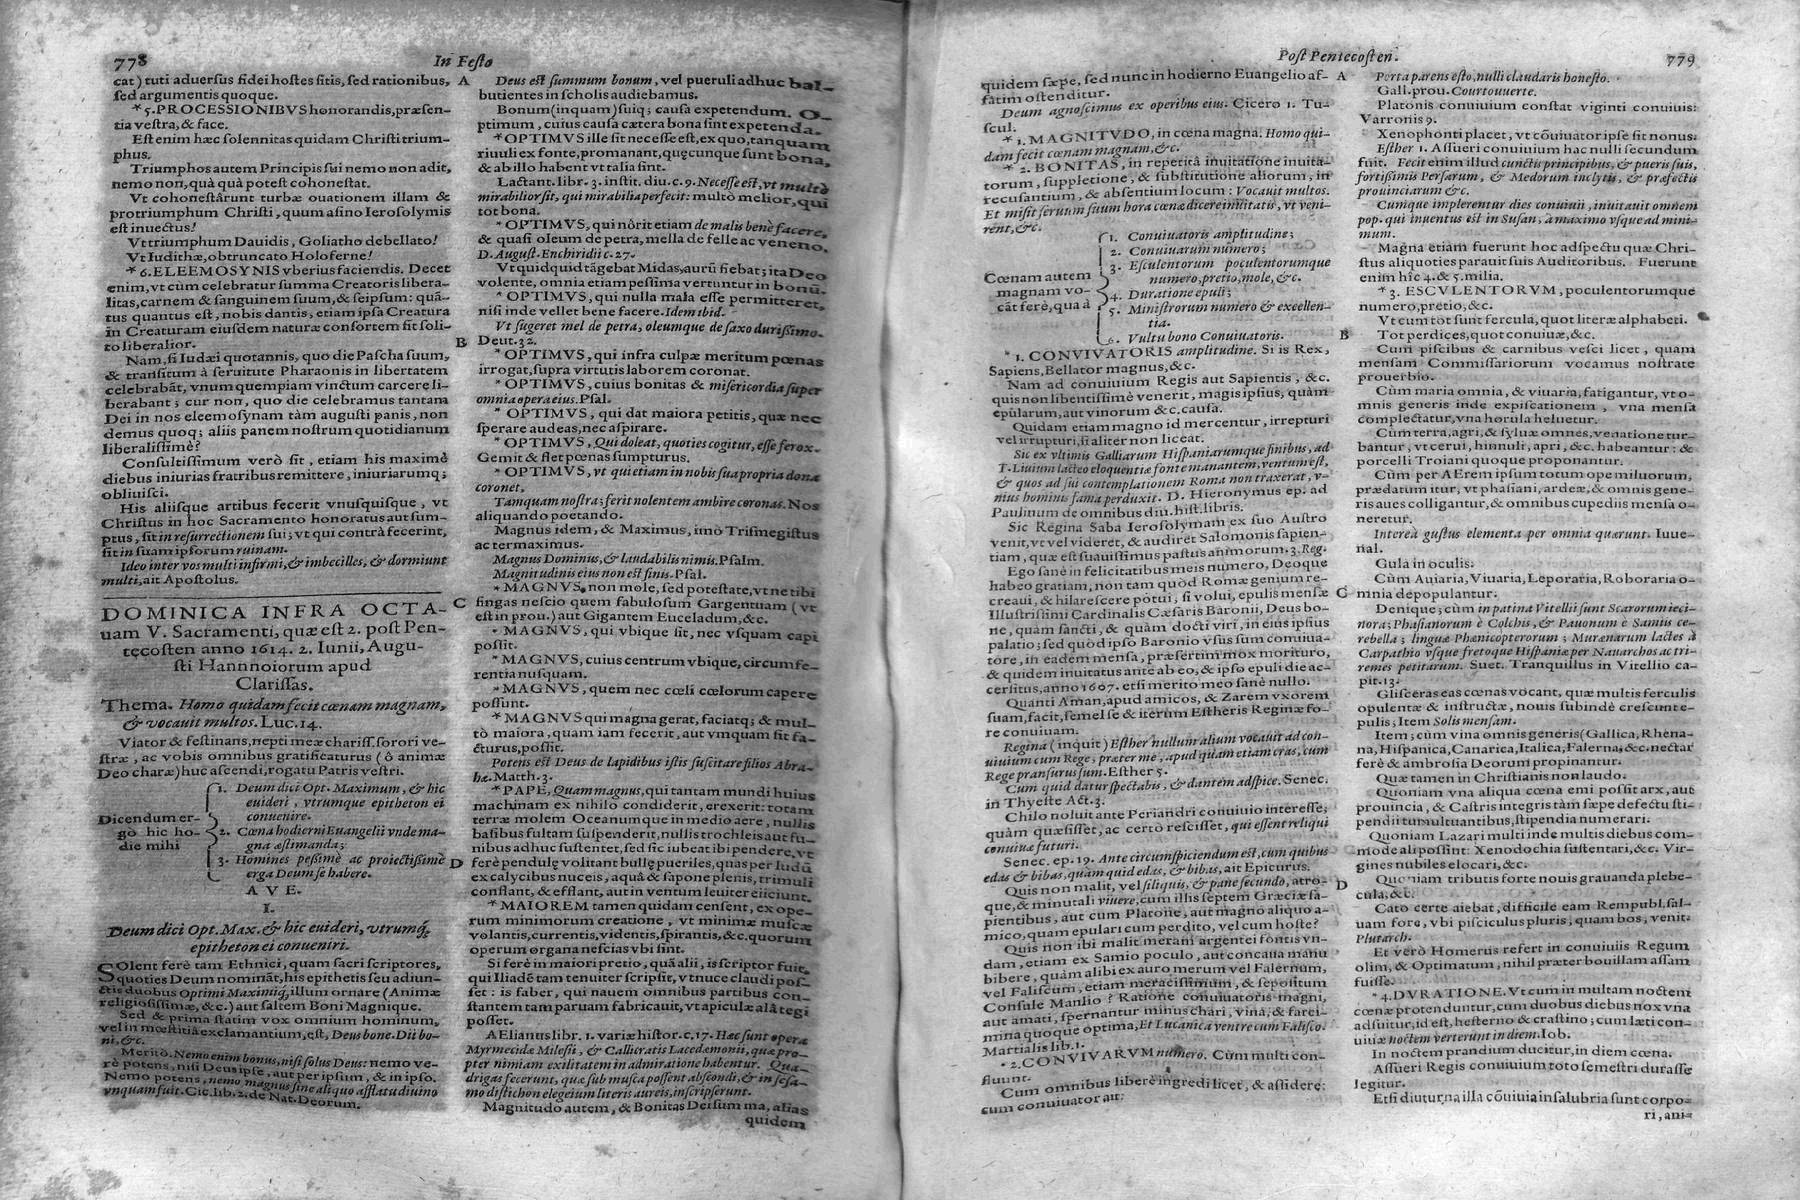 778
In Festo
cat) tuti aduersus fidei hostes sitis, sed rationibus,
sed argumentis quoque.
* 5. PROCESSIONIBVS honorandis, præsen-
tia vestra, & face.
Est enim hæc solennitas quidam Christi trium-
phus.
Triumphos autem Principis sui nemo non adit,
nemo non, quà quà potest cohonestat.
Vt cohonestârunt turbæ ouationem illam &
protriumphum Christi, quum asino Ierosolymis
est inuectus!
Vt triumphum Dauidis, Goliatho debellato!
Vt Iudithæ, obtruncato Holoferne!
* 6. ELEEMOSYNIS vberius faciendis. Decet
enim, vt cùm celebratur summa Creatoris libera-
litas, carnem & sanguinem suum, & seipsum: quã-
tus quantus est, nobis dantis, etiam ipsa Creatura
in Creaturam eiusdem naturæ consortem sit soli-
to liberalior.
Nam, si Iudæi quotannis, quo die Pascha suum,
& transitum à seruitute Pharaonis in libertatem
celebrabãt, vnum quempiam vinctum carcere li-
berabant; cur non, quo die celebramus tantam
Dei in nos eleemosynam tàm augusti panis, non
demus quoq; aliis panem nostrum quotidianum
liberalissimè?
Consultissimum verò sit, etiam his maximè
diebus iniurias fratribus remittere, iniuriarumq;
obliuisci.
His aliisque artibus fecerit vnusquisque, vt
Christus in hoc Sacramento honoratus aut sum-
ptus, sit in resurrectionem sui; vt qui contrà fecerint,
sit in suam ipsorum ruinam.
Ideo inter vos multi infirmi, & imbecilles, & dormiunt
multi, ait Apostolus.
DOMINICA INFRA OCTA-
uam V. Sacramenti, quæ est 2. post Pen-
tecosten anno 1614. 2. Iunii, Augu-
sti Hannnoiorum apud
Clarissas.
Thema. Homo quidam fecit cœnam magnam,
& vocauit multos. Luc. 14.
Viator & festinans, nepti meæ chariss. sorori ve-
stræ, ac vobis omnibus gratificaturus (ô animæ
Deo charæ) huc ascendi, rogatu Patris vestri.
Dicendum er-
gò hic ho-
die mihi
1. Deum dici Opt. Maximum, & hic
euideri, vtrumque epitheton ei
conuenire.
2. Cœna hodierni Euangelii vnde ma-
gna æstimanda;
3. Homines pessimè ac proiectissimè
erga Deum se habere.
A V E.
I.
Deum dici Opt. Max. & hic euideri, vtrumq;
epitheton ei conueniri.
SOlent ferè tam Ethnici, quam sacri scriptores,
quoties Deum nominãt, his epithetis seu adiun-
ctis duobus Optimi Maximiq;, illum ornare (Animæ
religiosissimæ, &c.) aut saltem Boni Magnique.
Sed & prima statim vox omnium hominum,
vel in mœstitia exclamantium, est, Deus bone. Dii bo-
ni, &c.
Meritò. Nemo enim bonus, nisi solus Deus: nemo ve-
rè potens, nisi Deus ipse, aut per ipsum, & in ipso.
Nemo potens, nemo magnus sine aliquo afflatu diuino
vnquam fuit. Cic. lib. 2. de Nat. Deorum.
A
Deus est summum bonum, vel pueruli adhuc bal-
butientes in scholis audiebamus.
Bonum (inquam) suiq; causa expetendum. O-
ptimum, cuius causa cætera bona sint expetenda.
* OPTIMVS ille sit necesse est, ex quo, tanquam
riuuli ex fonte, promanant, quęcunque sunt bona,
& ab illo habent vt talia sint.
Lactant. libr. 3. instit. diu. c. 9. Necesse est, vt multò
mirabilior sit, qui mirabilia perfecit: multò melior, qui
tot bona.
* OPTIMVS, qui nôrit etiam de malis benè facere,
& quasi oleum de petra, mella de felle ac veneno.
D. August. Enchiridii c. 27.
Vt quidquid tãgebat Midas, aurũ fiebat; ita Deo
volente, omnia etiam pessima vertuntur in bonũ.
* OPTIMVS, qui nulla mala esse permitteret,
nisi inde vellet bene facere. Idem ibid.
Vt sugeret mel de petra, oleumque de saxo durissimo.
B
Deut. 32.
* OPTIMVS, qui infra culpæ meritum pœnas
irrogat, supra virtutis laborem coronat.
* OPTIMVS, cuius bonitas & misericordia super
omnia opera eius. Psal.
* OPTIMVS, qui dat maiora petitis, quæ nec
sperare audeas, nec aspirare.
* OPTIMVS, Qui doleat, quoties cogitur, esse ferox.
Gemit & flet pœnas sumpturus.
* OPTIMVS, vt qui etiam in nobis sua propria dona
coronet.
Tamquam nostra; ferit nolentem ambire coronas. Nos
aliquando poetando.
Magnus idem, & Maximus, imò Trismegistus
ac termaximus.
Magnus Dominus, & laudabilis nimis. Psalm.
Magnitudinis eius non est finis. Psal.
* MAGNVS, non mole, sed potestate, vt ne tibi
C
fingas nescio quem fabulosum Gargentuam (vt
est in prou.) aut Gigantem Euceladum, &c.
* MAGNVS, qui vbique sit, nec vsquam capi
possit.
* MAGNVS, cuius centrum vbique, circumfe-
rentia nusquam.
* MAGNVS, quem nec cœli cœlorum capere
possunt.
* MAGNVS qui magna gerat, faciatq; & mul-
tò maiora, quam iam fecerit, aut vmquam sit fa-
cturus, possit.
Potens est Deus de lapidibus istis suscitare filios Abra-
hæ. Matth. 3.
* PAPE, Quam magnus, qui tantam mundi huius
machinam ex nihilo condiderit, erexerit: totam
terræ molem Oceanumque in medio aere, nullis
basibus fultam suspenderit, nullis trochleis aut fu-
nibus adhuc sustentet, sed sic iubeat ibi pendere, vt
D
ferè pendulę volitant bullę pueriles, quas per ludũ
ex calycibus nuceis, aquâ & sapone plenis, trimuli
conflant, & efflant, aut in ventum leuiter eiiciunt.
* MAIOREM tamen quidam censent, ex ope-
rum minimorum creatione, vt minimæ muscæ
volantis, currentis, videntis, spirantis, &c. quorum
operum organa nescias vbi sint.
Si ferè in maiori pretio, quã alii, is scriptor fuit,
qui Iliadẽ tam tenuiter scripsit, vt nuce claudi pos-
set: is faber, qui nauem omnibus partibus con-
stantem tam paruam fabricauit, vt apiculæ alâ tegi
posset.
AElianus libr. 1. variæ histor. c. 17. Hæc sunt opera
Myrmecidæ Milesii, & Callicratis Lacedæmonii, quæ pro-
pter nimiam exilitatem in admiratione habentur. Qua-
drigas fecerunt, quæ sub musca possent abscondi, & in sesa-
mo distichon elegeium literis aureis, inscripserunt.
Magnitudo autem, & Bonitas Dei summa, alias
quidem
Post Pentecosten.
779
quidem sæpe, sed nunc in hodierno Euangelio af-
fatim ostenditur.
Deum agnoscimus ex operibus eius. Cicero 1. Tu-
scul.
* 1. MAGNITVDO, in cœna magna. Homo qui-
dam fecit cœnam magnam, &c.
* 2. BONITAS, in repetitâ inuitatione inuita-
torum, suppletione, & substitutione aliorum, in
recusantium, & absentium locum: Vocauit multos.
Et misit seruum suum hora cœnæ dicere inuitatis, vt veni-
rent, &c.
Cœnam autem
magnam vo-
cãt ferè, qua à
1. Conuiuatoris amplitudine;
2. Conuiuarum numero;
3. Esculentorum poculentorumque
numero, pretio, mole, &c.
4. Duratione epuli;
5. Ministrorum numero & excellen-
tia.
6. Vultu bono Conuiuatoris.
* 1. CONVIVATORIS amplitudine. Si is Rex,
Sapiens, Bellator magnus, &c.
Nam ad conuiuium Regis aut Sapientis, &c.
quis non libentissimè venerit, magis ipsius, quàm
epularum, aut vinorum &c. causa.
Quidam etiam magno id mercentur, irrepturi
vel irrupturi, si aliter non liceat.
Sic ex vltimis Galliarum Hispaniarumque finibus, ad
T. Liuium lacteo eloquentiæ fonte manantem, ventum est,
& quos ad sui contemplationem Roma non traxerat, v-
nius hominis fama perduxit. D. Hieronymus ep. ad
Paulinum de omnibus diu. hist. libris.
Sic Regina Saba Ierosolymam ex suo Austro
venit, vt vel videret, & audiret Salomonis sapien-
tiam, quæ est suauissimus pastus animorum. 3. Reg.
Ego sanè in felicitatibus meis numero, Deoque
habeo gratiam, non tam quòd Romæ genium re-
creaui, & hilarescere potui, si volui, epulis mensæ
Illustrissimi Cardinalis Cæsaris Baronii, Deus bo-
ne, quàm sancti, & quàm docti viri, in eius ipsius
palatio; sed quòd ipso Baronio vsus sum conuiua-
tore, in eadem mensa, præsertim mox morituro,
& quidem inuitatus ante ab eo, & ipso epuli die ac-
cersitus, anno 1607. etsi merito meo sanè nullo.
Quanti Aman, apud amicos, & Zarem vxorem
suam, facit, semel se & iterum Estheris Reginæ fo-
re conuiuam.
Regina (inquit) Esther nullum alium vocauit ad con-
uiuium cum Rege, præter me, apud quam etiam cras, cum
Rege pransurus sum. Esther 5.
Cum quid datur spectabis, & dantem adspice. Senec.
in Thyeste Act. 3.
Chilo noluit ante Periandri conuiuio interesse;
quàm quæsisset, ac certò resciisset, qui essent reliqui
conuiuæ futuri.
Senec. ep. 19. Ante circumspiciendum est, cum quibus
edas & bibas, quam quid edas, & bibas, ait Epicurus.
Quis non malit, vel siliquis, & pane secundo, atro-
que, & minutali viuere, cum illis septem Græciæ sa-
pientibus, aut cum Platone, aut magno aliquo a-
mico, quam epulari cum perdito, vel cum hoste?
Quis non ibi malit merani argentei fontis vn-
dam, etiam ex Samio poculo, aut concaua manu
bibere, quàm alibi ex auro merum vel Falernum,
vel Faliscum, etiam meracissimum, & sepositum
Consule Manlio? Ratione conuiuatoris magni,
aut amati, spernantur minus chari, vina, & farci-
mina quoque optima, Et Lucanica ventre cum Falisco.
Martialis lib. 1.
* 2. CONVIVARVM numero. Cùm multi con-
fluunt.
Cum omnibus liberè ingredi licet, & assidere:
cum conuiuator ait:
A
Porta parens esto, nulli claudaris honesto.
Gall. prou. Court ouuerte.
Platonis conuiuium constat viginti conuiuis:
Varronis 9.
Xenophonti placet, vt cõuiuator ipse sit nonus.
Esther 1. Assueri conuiuium hac nulli secundum
fuit. Fecit enim illud cunctis principibus, & pueris suis,
fortissimis Persarum, & Medorum inclytis, & præfectis
prouinciarum &c.
Cumque implerentur dies conuiuii, inuitauit omnem
pop. qui inuentus est in Susan, à maximo vsque ad mini-
mum.
Magna etiam fuerunt hoc adspectu quæ Chri-
stus aliquoties parauit suis Auditoribus. Fuerunt
enim hîc 4. & 5. milia.
* 3. ESCVLENTORVM, poculentorumque
numero, pretio, &c.
Vt cum tot sunt fercula, quot literæ alphabeti.
B
Tot perdices, quot conuiuæ, &c.
Cùm piscibus & carnibus vesci licet, quam
mensam Commissariorum vocamus nostrate
prouerbio.
Cùm maria omnia, & viuaria, fatigantur, vt o-
mnis generis inde expiscationem, vna mensa
complectatur, vna horula heluetur.
Cùm terra, agri, & syluæ omnes, venatione tur-
bantur, vt cerui, hinnuli, apri, &c. habeantur: &
porcelli Troiani quoque proponantur.
Cùm per AErem ipsum totum ope miluorum,
prædatum itur, vt phasiani, ardeæ, & omnis gene-
ris aues colligantur, & omnibus cupediis mensa o-
neretur.
Intereà gustus elementa per omnia quærunt. Iuue-
nal.
Gula in oculis.
Cùm Auiaria, Viuaria, Leporaria, Roboraria o-
C
mnia depopulantur.
Denique; cùm in patina Vitellii sunt Scarorum ieci-
nora; Phasianorum è Colchis, & Pauonum è Samiis ce-
rebella; linguæ Phœnicopterorum; Murænarum lactes à
Carpathio vsque fretoque Hispaniæ per Nauarchos ac tri-
remes petitarum. Suet. Tranquillus in Vitellio ca-
pit. 13.
Glisceras eas cœnas vocant, quæ multis ferculis
opulentæ & instructæ, nouis subindè crescunt e-
pulis; Item Solis mensam.
Item; cùm vina omnis generis (Gallica, Rhena-
na, Hispanica, Canarica, Italica, Falerna, &c. nectar
ferè & ambrosia Deorum propinantur.
Quæ tamen in Christianis non laudo.
Quoniam vna aliqua cœna emi possit arx, aut
prouincia, & Castris integris tàm sæpe defectu sti-
pendii tumultuantibus, stipendia numerari.
Quoniam Lazari multi inde multis diebus com-
mode ali possint: Xenodochia sustentari, &c. Vir-
gines nubiles elocari, &c.
Quoniam tributis forte nouis grauanda plebe-
D
cula, &c.
Cato certe aiebat, difficile eam Rempubl. sal-
uam fore, vbi pisciculus pluris, quam bos, venit.
Plutarch.
Et verò Homerus refert in conuiuiis Regum
olim, & Optimatum, nihil præter bouillam assam
fuisse.
* 4. DVRATIONE. Vt cum in multam noctem
cœnæ protenduntur, cum duobus diebus nox vna
adsuitur, id est, hesterno & crastino; cum læti con-
uiuiæ noctem verterunt in diem. Iob.
In noctem prandium ducitur, in diem cœna.
Assueri Regis conuiuium toto semestri durasse
legitur.
Etsi diuturna illa cõuiuia insalubria sunt corpo-
ri, ani-